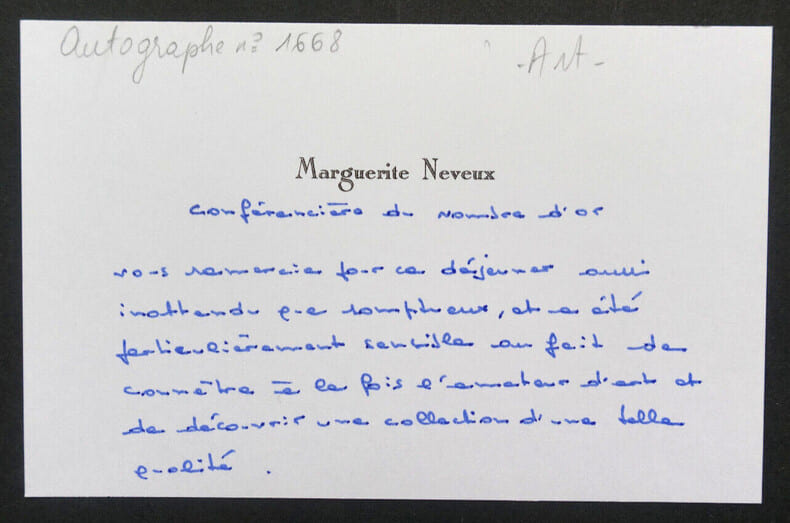 Autographe n° 1668
- Art -
Marguerite Neveux
Conférencière du Nombre d'or
vous remercie pour ce déjeuner aussi
inattendu que somptueux, et a été
particulièrement sensible au fait de
connaître à la fois l'amateur d'art et
de découvrir une collection d'une telle
qualité.